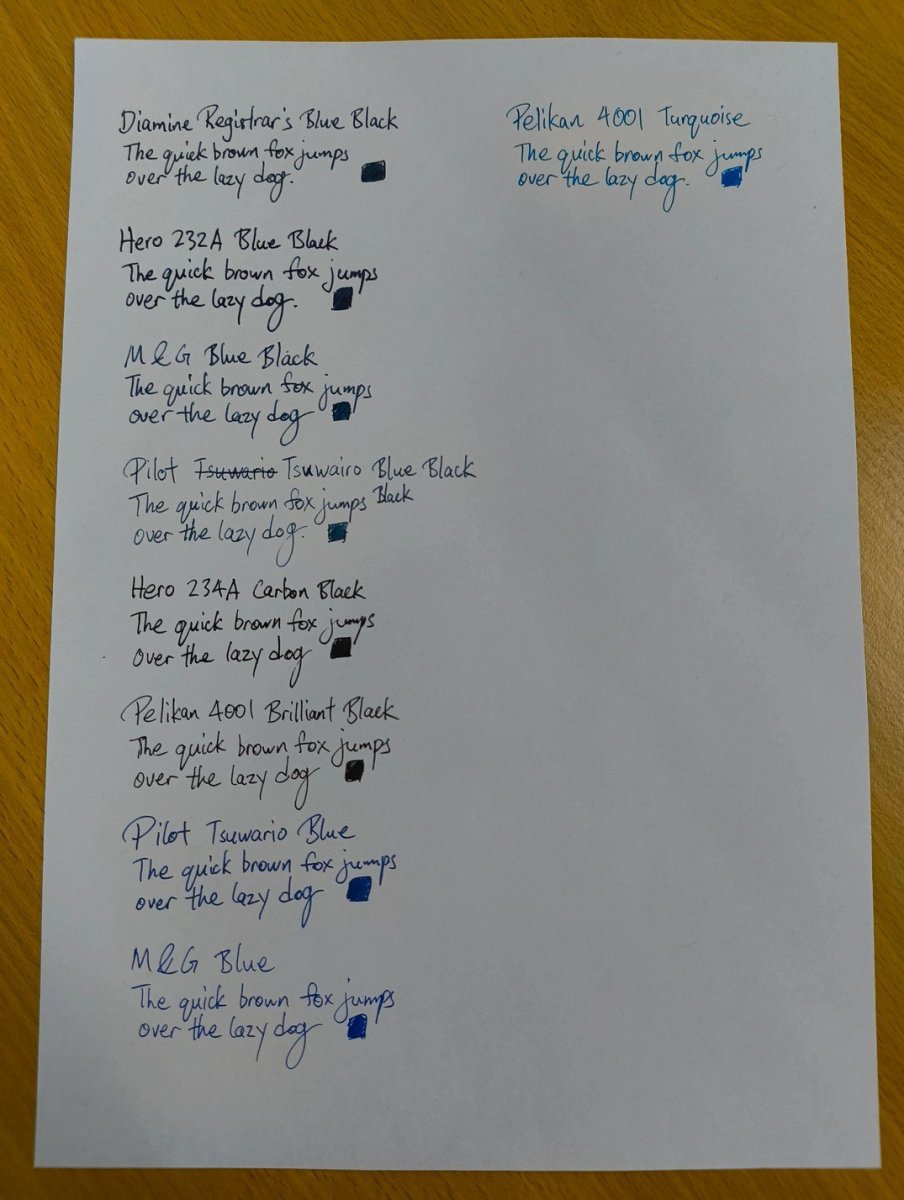 Diamine Registrar's Blue Black
The quick brown fox jumps
over the lazy dog.
Hero 232A Blue Black
The quick brown fox jumps
over the lazy dog.
M & G Blue Black
The quick brown fox jumps
over the lazy dog
Pilot Tsuwario Tsuwairo Blue Black
The quick brown fox jumps Black
over the lazy dog.
Hero 234A Carbon Black
The quick brown fox jumps
over the lazy dog
Pelikan 4001 Brilliant Black
The quick brown fox jumps
over the lazy dog
Pilot Tsuwario Blue
The quick brown fox jumps
over the lazy dog
M & G Blue
The quick brown fox jumps
over the lazy dog
Pelikan 4001 Turquoise
The quick brown fox jumps
over the lazy dog.